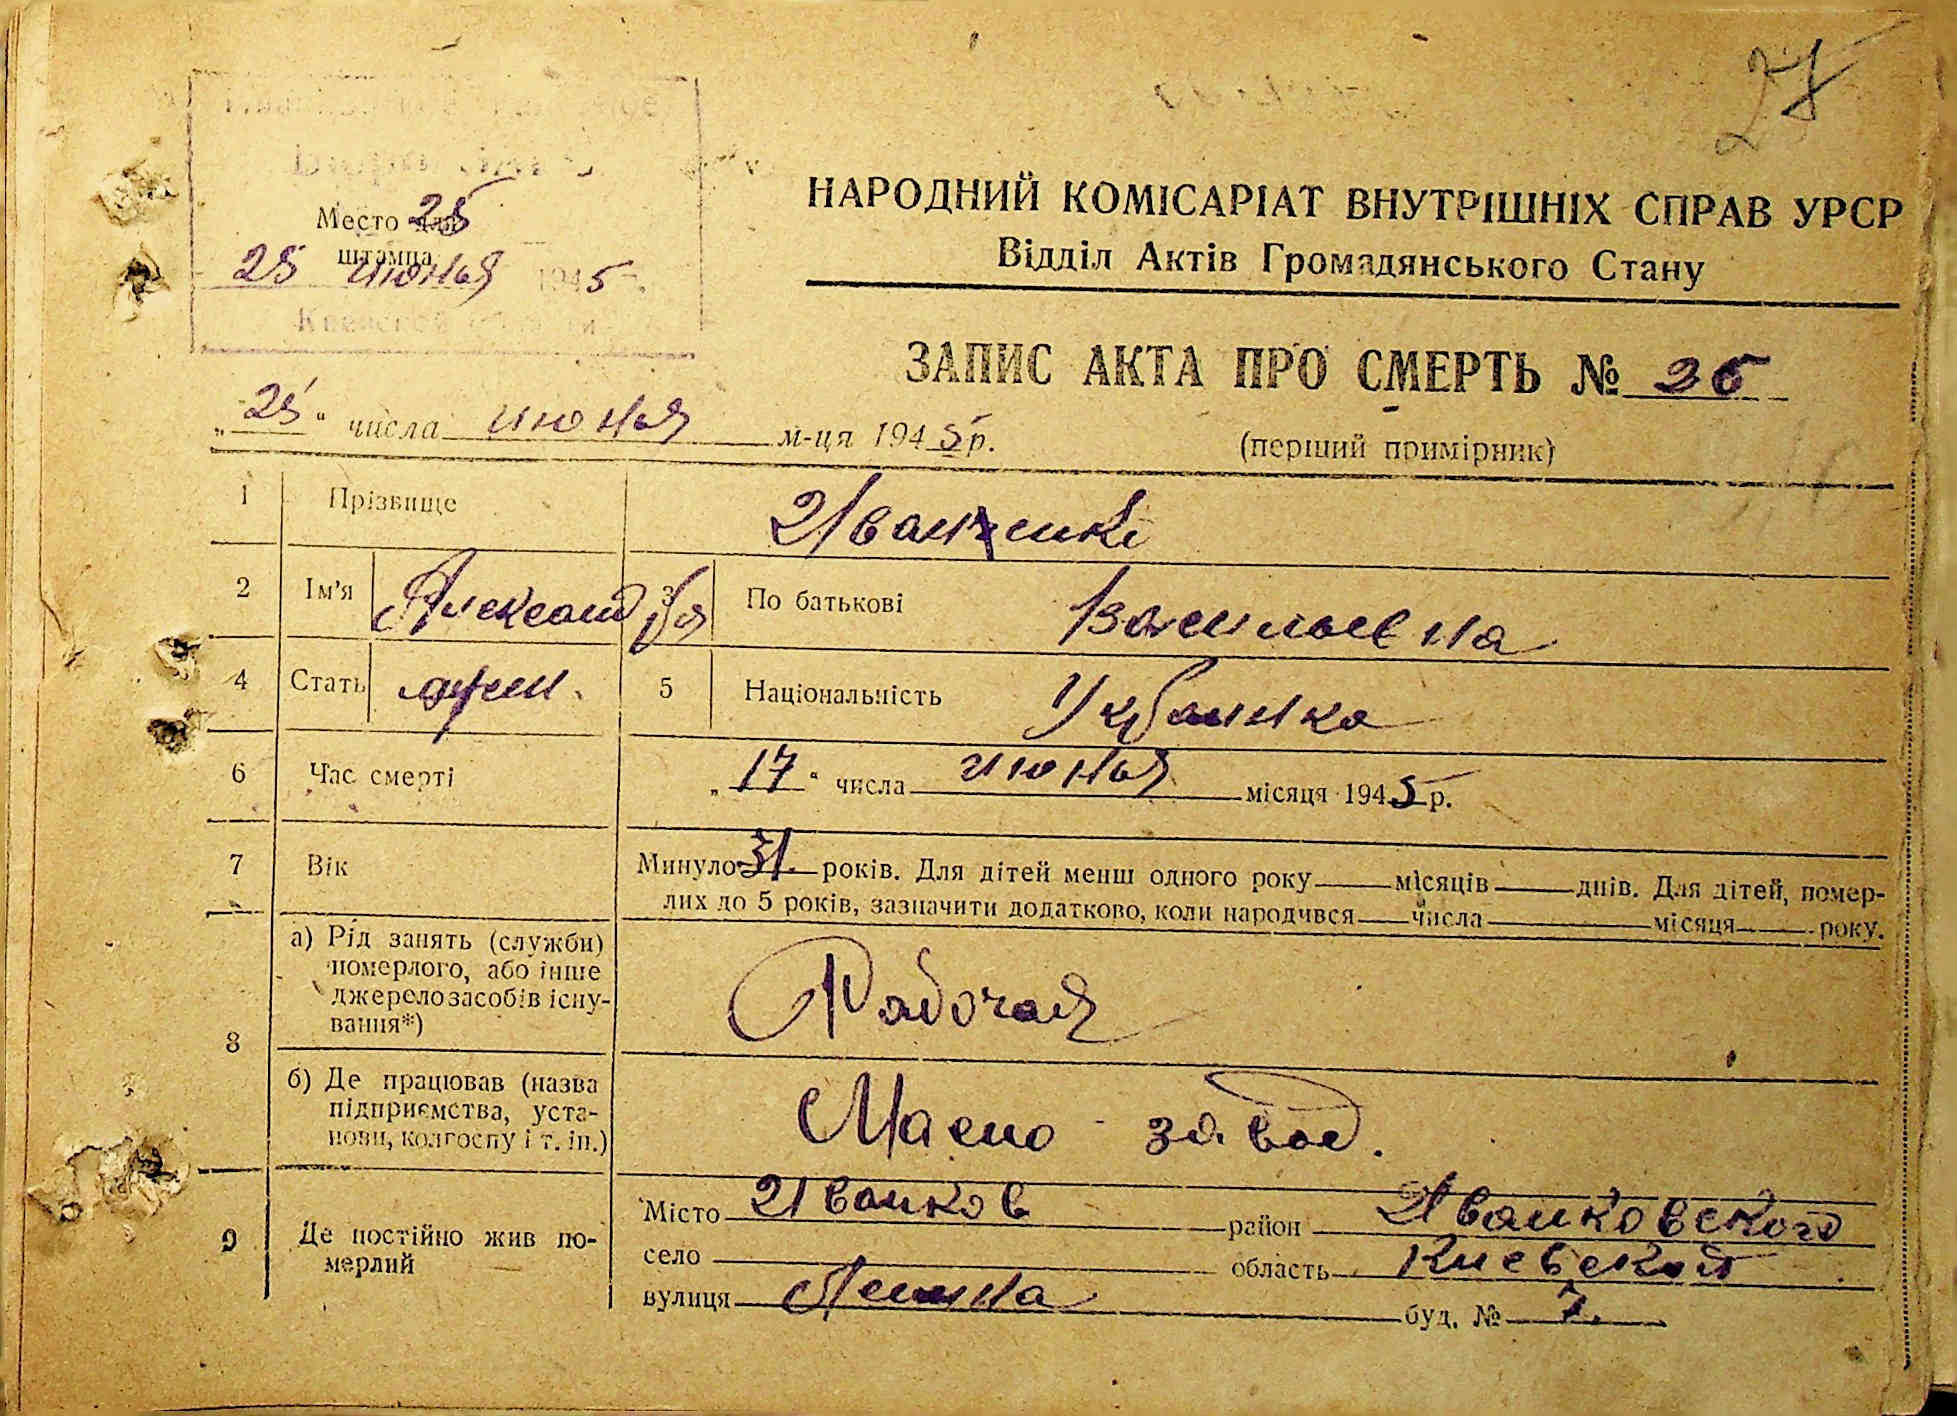 27
Место для
штампа
25
25 июня 1945.
Киевской
НАРОДНИЙ КОМІСАРІАТ ВНУТРІШНІХ СПРАВ УРСР
Відділ Актів Громадянського Стану
ЗАПИС АКТА ПРО СМЕРТЬ №
„25“ числа июня м-ця 1945р.
(перший примірник)
1 Прізвище
2 Ім'я Александра 3 По батькові Васильевна
4 Стать 5 Національність Украинка
6 Час смерті „17“ числа июня місяця 1945р.
7 Вік Минуло 31. років. Для дітей менш одного року місяців днів. Для дітей, помер-
лих до 5 років, зазначити додатково, коли народився числа місяця року.
8 а) Рід занять (служби)
померлого, або інше
джерело засобів існу-
вання*)
Рабочая
б) Де працював (назва
підприємства, уста-
нови, колгоспу і т. ін.)
Масло-завод.
9 Де постійно жив по-
мерлий
Місто Иванков район Иванковского
село область Киевской
вулиця Ленина буд. № 7.